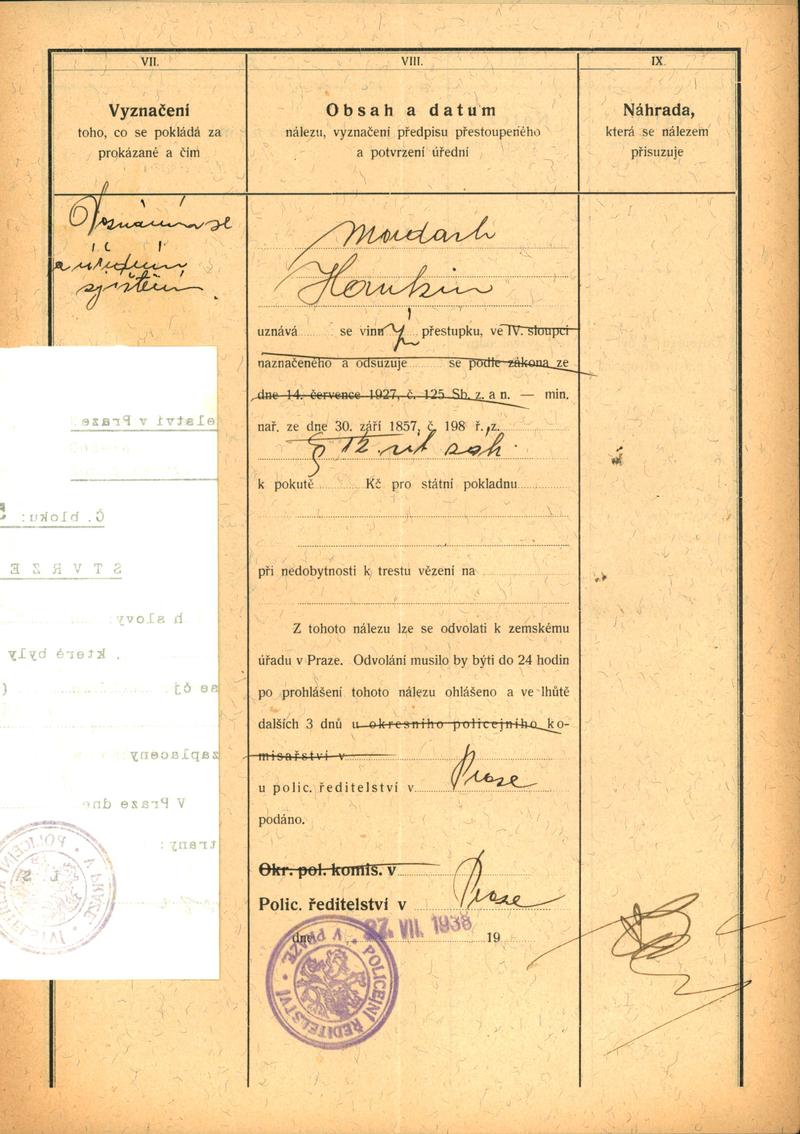 VII.
Vyznačení
toho, co se pokládá za
prokázané a čím
VIII.
Obsah a datum
nálezu, vyznačení předpisu přestoupeného
a potvrzení úřední
IX.
Náhrada,
která se nálezem
přisuzuje
Doznáním se
a úředním
zjištěním.
Mordach
Hankin
uznává se vinným přestupku, ve IV. sloupci
naznačeného a odsuzuje se podle zákona ze
dne 14. července 1927, č. 125 Sb. z. a n. — min.
nař. ze dne 30. září 1857, č. 198 ř. z.
§ 12
k pokutě Kč pro státní pokladnu
při nedobytnosti k trestu vězení na
Z tohoto nálezu lze se odvolati k zemskému
úřadu v Praze. Odvolání musilo by býti do 24 hodin
po prohlášení tohoto nálezu ohlášeno a ve lhůtě
dalších 3 dnů u okresního policejního ko-
misařství v
u polic. ředitelství v Praze
podáno.
Okr. pol. komis. v
Polic. ředitelství v Praze
dne 27. VII. 1938 19
POLICEJNÍ ŘEDITELSTVÍ V PRAZE
elství v Praze
Č. bloku: 5
S T V R Z E
h slovy
, které byly
se čj. (
zaplaceny
V Praze dne
trany: